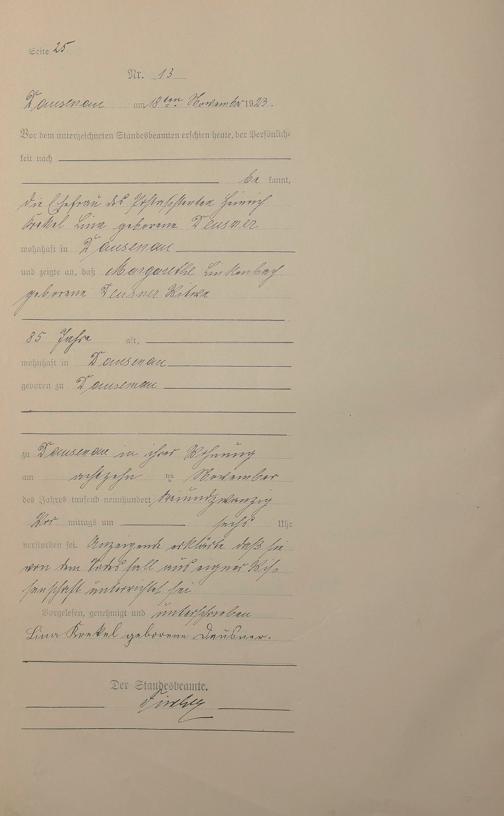 Seite 25
Nr. 13
Dausenau am 18ten November 1923.
Vor dem unterzeichneten Standesbeamten erschien heute, der Persönlich-
keit nach
be kannt,
die Ehefrau des Heinrich
Krekel Lina geborene Deusner
wohnhaft in Dausenau
und zeigte an, daß Margarethe Linkenbach
geborene Deusner Witwe
85 Jahre alt,
wohnhaft in Dausenau
geboren zu Dausenau
zu Dausenau in ihrer Wohnung
am achtzehn ten November
des Jahres tausend neunhundert dreiundzwanzig
Vor mittags um sechs Uhr
verstorben sei. Anzeigende erklärte daß sie
von dem Todesfall aus eigner Wis-
senschaft unterrichtet sei
Vorgelesen, genehmigt und unterschrieben
Lina Krekel geborene Deusner.
Der Standesbeamte.